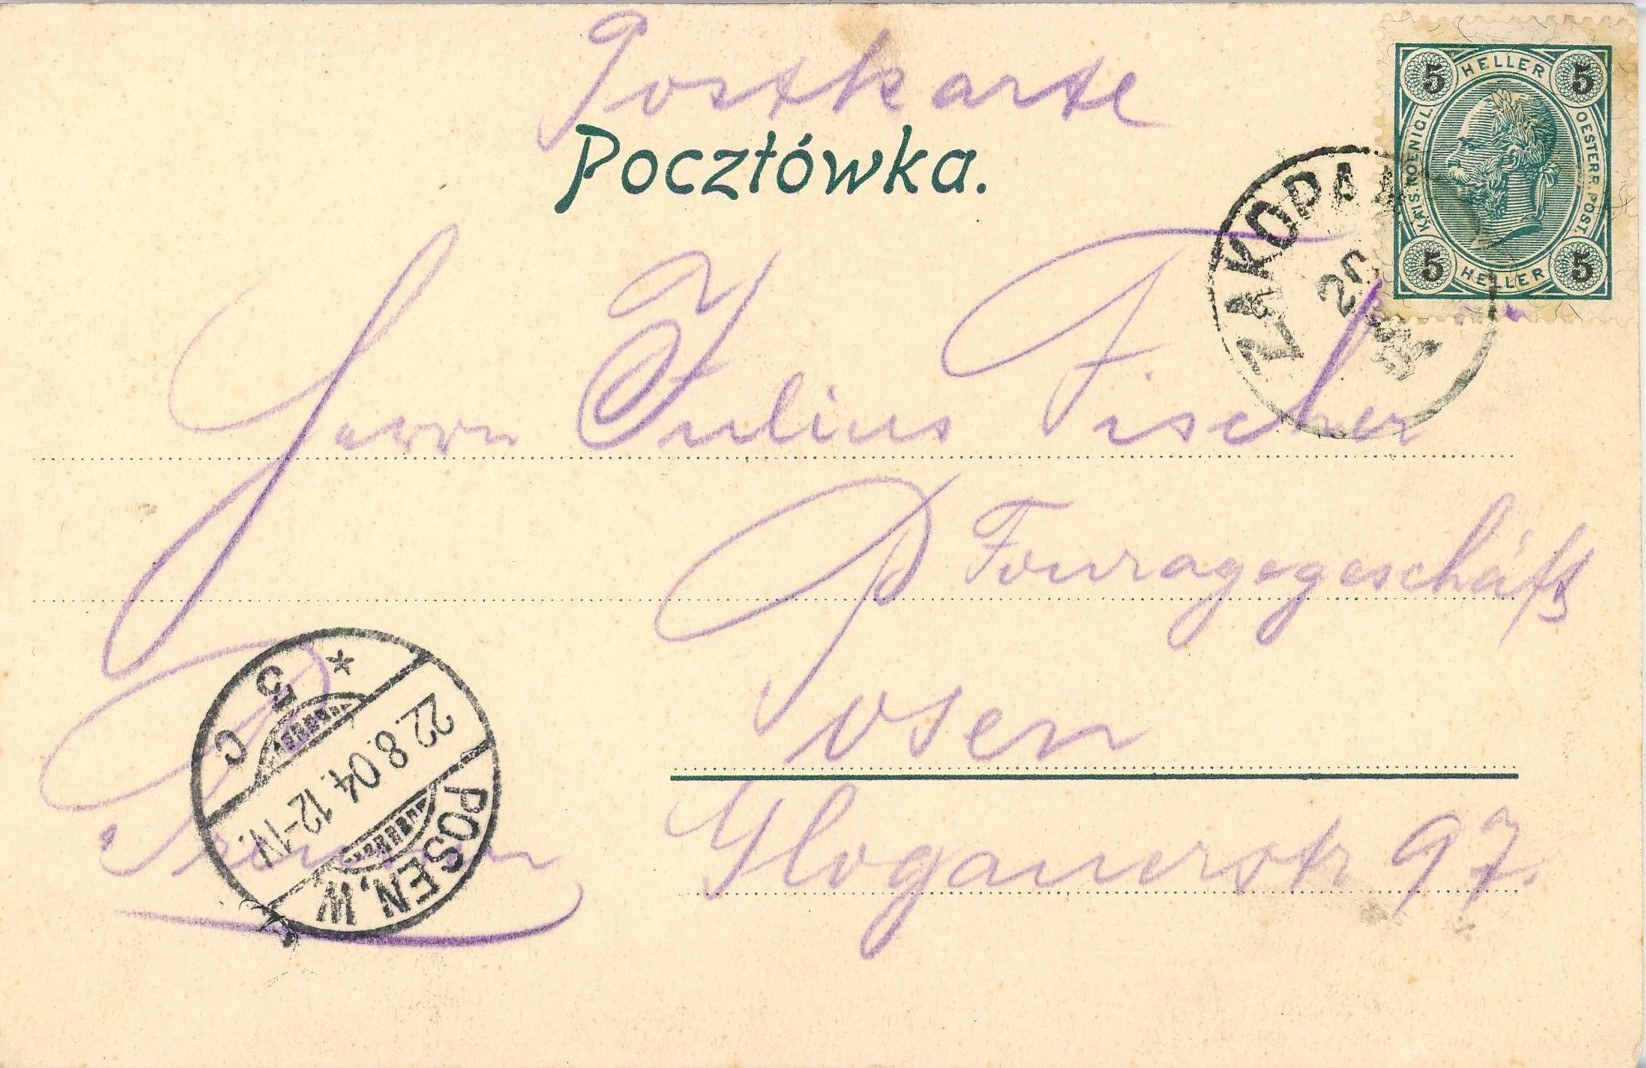 Postkarte
Pocztówka.
5 HELLER 5
KAIS. KOENIGL. OESTERR. POST.
5 HELLER 5
ZAKOPA
20
Herrn Julius Fischer
Fouragegeschäft
Posen
Glogauerstr 97.
* 5 C
22.8.04 12-1V.
POSEN. W.